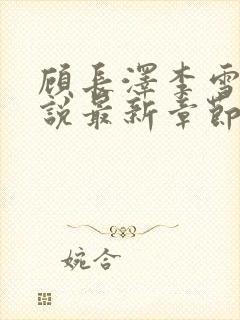 顾长澤李雪
說最新章節
婉合